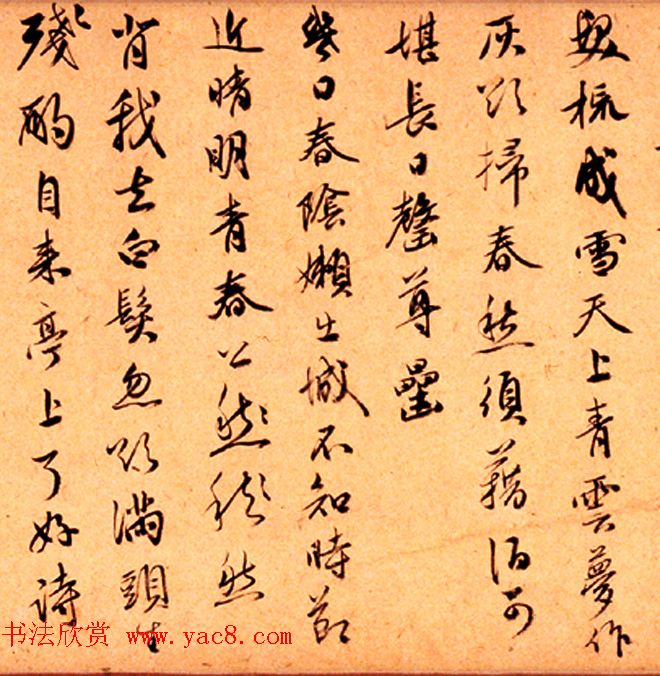 梳成雪天上青雲夢作
灰欲掃春愁須藉酒可
堪長日罄尊罍
日春陰嬾出城不知時節
近晴明青春公然然
背我去白髮忽欲滿頭生
殘酌自来亭上了好詩
书法欣赏 www.yac8.com